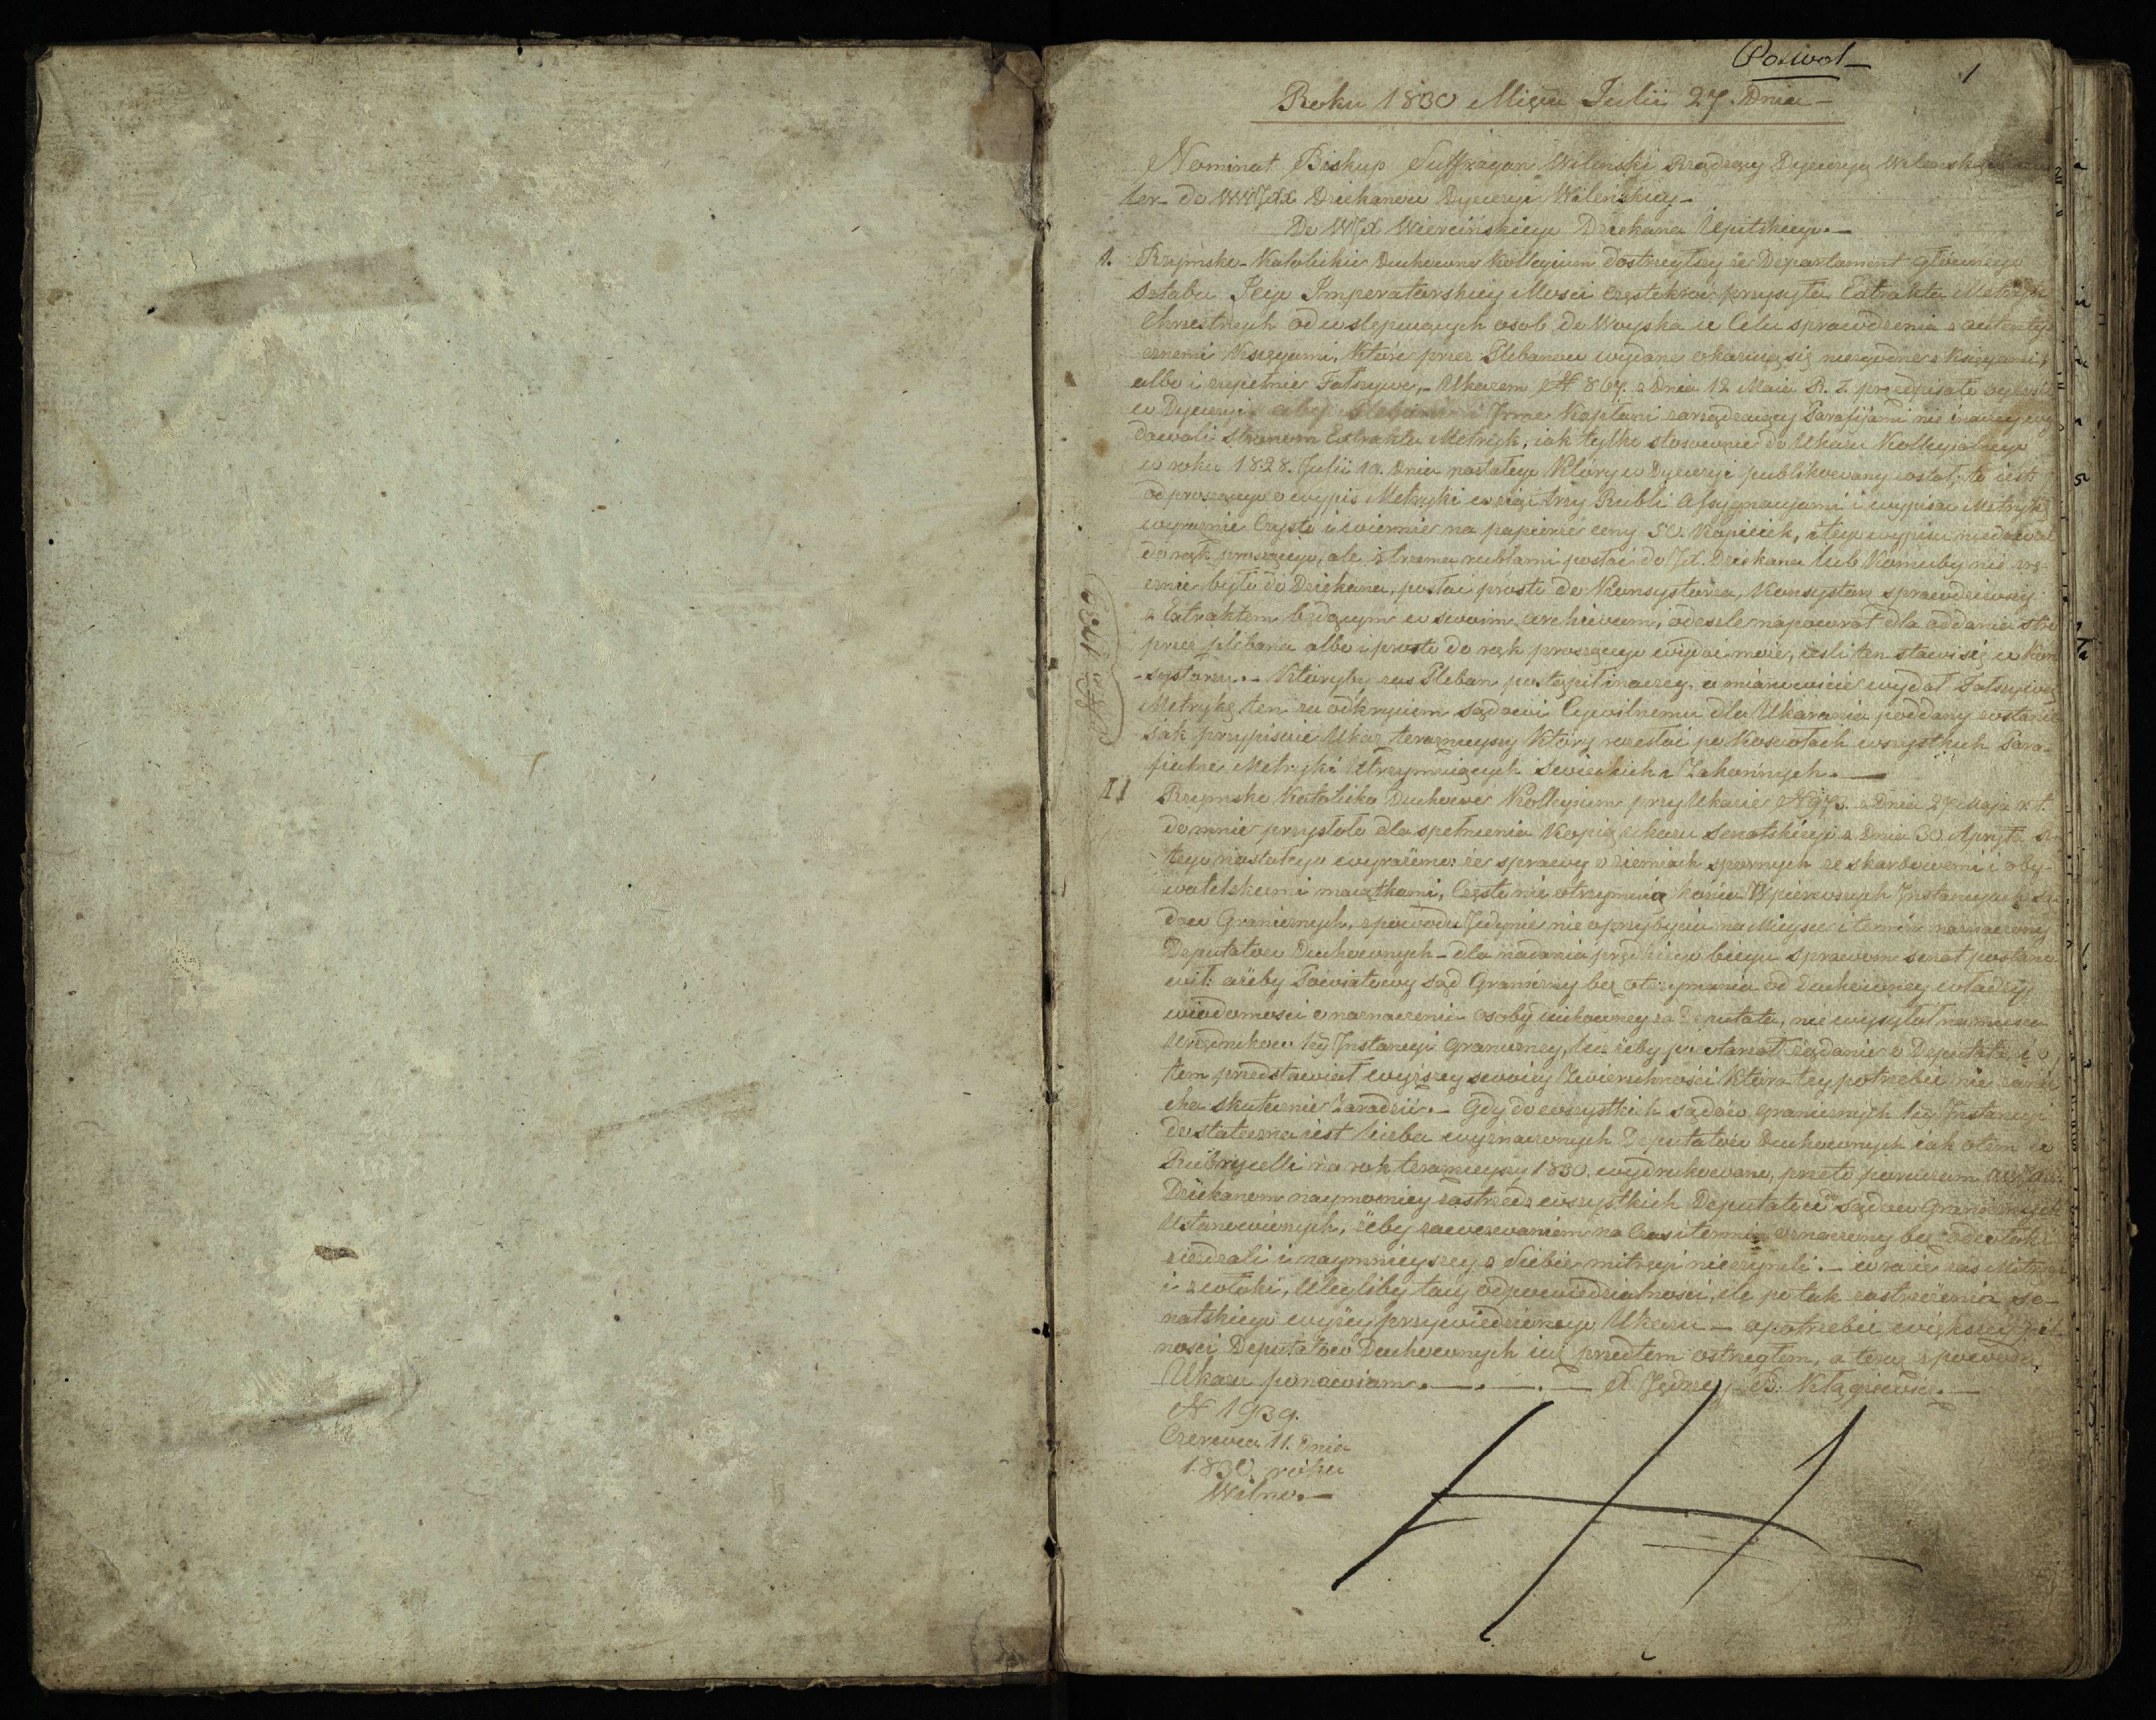 1
Roku 1830 Mięca Julii 27. Dnia
Nominat Biskup Suffragan Wilenski Rządzący Dyecezyą Wilenską
ter do WWJXX Dziekanow Dyecezyi Wilenskiey
Do WJX Wiercińskiego Dziekana Upitskiego.
1. Rzymsko-Katolickie Duchowne Kollegium dostrzegłszy że Departament Głownego
Sztabu Jego Imperatorskiey Mosci częstokroć przysyła Extrakta Metryk
Chrzestnych od wstępuiących osob do Woyska w Celu sprawdzenia z autenty-
cznemi Księgami, Które przez Plebanow wydane okazuią się niezgodne z Księgami,
albo i zupełnie Fałszywe, Ukazem N 867. z Dnia 12 Maia R. T. przepisało ogłosić
w Dyecezyi aby Plebani i Inne Kapłani zarządzaiący Parafijami nie inaczey wy-
dawali stronom Extrakta Metryk, iak tylko stosownie do Ukazu Kollegialnego
w roku 1828. Julii 19. Dnia nastałego Który w Dyecezyi publikowany został, to iest:
od proszącego o wypis Metryki wziąć trzy Rubli Assygnacyami i wypisać Metrykę
wyraznie Czysto i wiernie na papierze ceny 50. Kopiiek, i tego wypisu niedawać
do rąk proszącego, ale z trzema rublami posłać do JX. Dziekana lub Komuby nie rę-
cznie było do Dziekana, posłać prosto do Konsystorza, Konsystorz sprawdziwszy
z Extraktem będącym w swoim archiwum, odeszle napowrot dla oddania stro
przez plebana albo i prosto do rąk proszącego wydać może, iesli ten stawi się w Kon
-systorzu. Któryby zas Pleban postąpił inaczey, a mianowicie wydał Fałszywą
Metrykę ten za odkryciem sądowi Cywilnemu dla Ukarania poddany zostanie
iak przypisuie Ukaz teraznieyszy Który rozesłać po Kosciołach wszystkich Para-
fialne Metryki Utrzymuiących Swieckich i Zakonnych.
II Rzymsko Katolickie Duchowne Kollegium przy Ukazie N 973. z Dnia 27 Maja r. t.
do mnie przysłało dla spełnienia Kopią ukazu Senatskiego z Dnia 30 Apryla
tego nastałego wyrażono: że sprawy o ziemiach spornych ze skarbowemi i oby-
watelskiemi maiątkami, Często nie otrzymuią Końca W pierwszych Instancyach Są-
dow Granicznych, z powodu Jedynie nie przybycia na Mieysce i termin naznaczony
Deputatow Duchownych dla nadania prędkiego biegu sprawom senat postano
wił: ażeby Powiatowy Sąd Graniczny bez otrzymania od Duchowney władzy
wiadomosci o naznaczeniu osoby duchowney za Deputata, nie wysyłał na mieysce
Urzędnikow 1ey Instancyi Graniczney, lecz żeby powtarzał żądanie o Deputata i o
tem przedstawiał wyższey swoiey Zwierzchności Która tey potrzebie nie
cha skutecznie Zaradzić. Gdy do wszystkich sądow granicznych 1ey Instancyi
dostateczna iest liczba wyznaczonych Deputatow Duchownych iak o tem w
Rubrycelli na rok teraznieyszy 1830. wydrukowano, przeto poruczam
Dziekanom naymocniey zastrzedz wszystkich Deputatow do sądow Granicznych
Ustanowionych, żeby za wezwaniem na Czas i termin oznaczony bez odwłoki
ziezdzali i naymnieyszey z Siebie mitręgi nieczynili. w razie zas Mitręgi
i zwłoki, Uległiby tacy odpowiedzialnosci, ile po tak zastrzeżeniu Se-
natskiego wyżey przywiedzionego Ukazu a potrzebie większey pil-
nosci Deputatow Duchownych iuż przedtem ostrzegłem, a teraz z powodu
Ukazu ponawiam. X Jędrzey B. Kłągiewicz.
N 1939.
Czerwca 11. Dnia
1830. roku
Wilno.